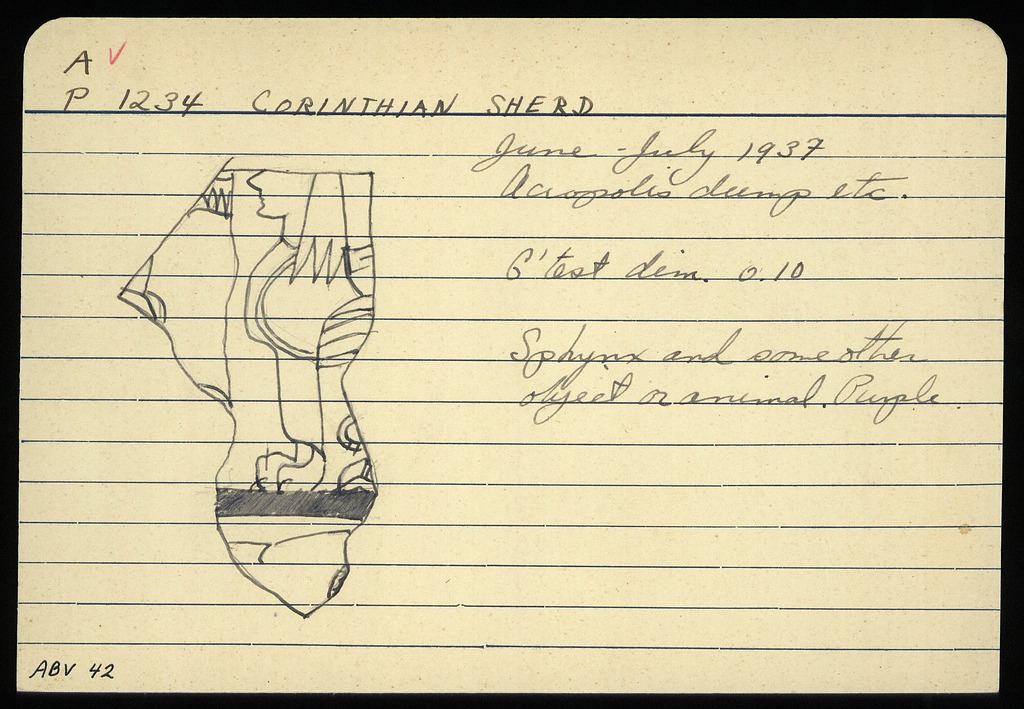 A ✓
P 1234 CORINTHIAN SHERD
June - July 1937
Acropolis dump etc.
G'test dim. 0.10
Sphynx and some other
object or animal. Purple.
ABV 42